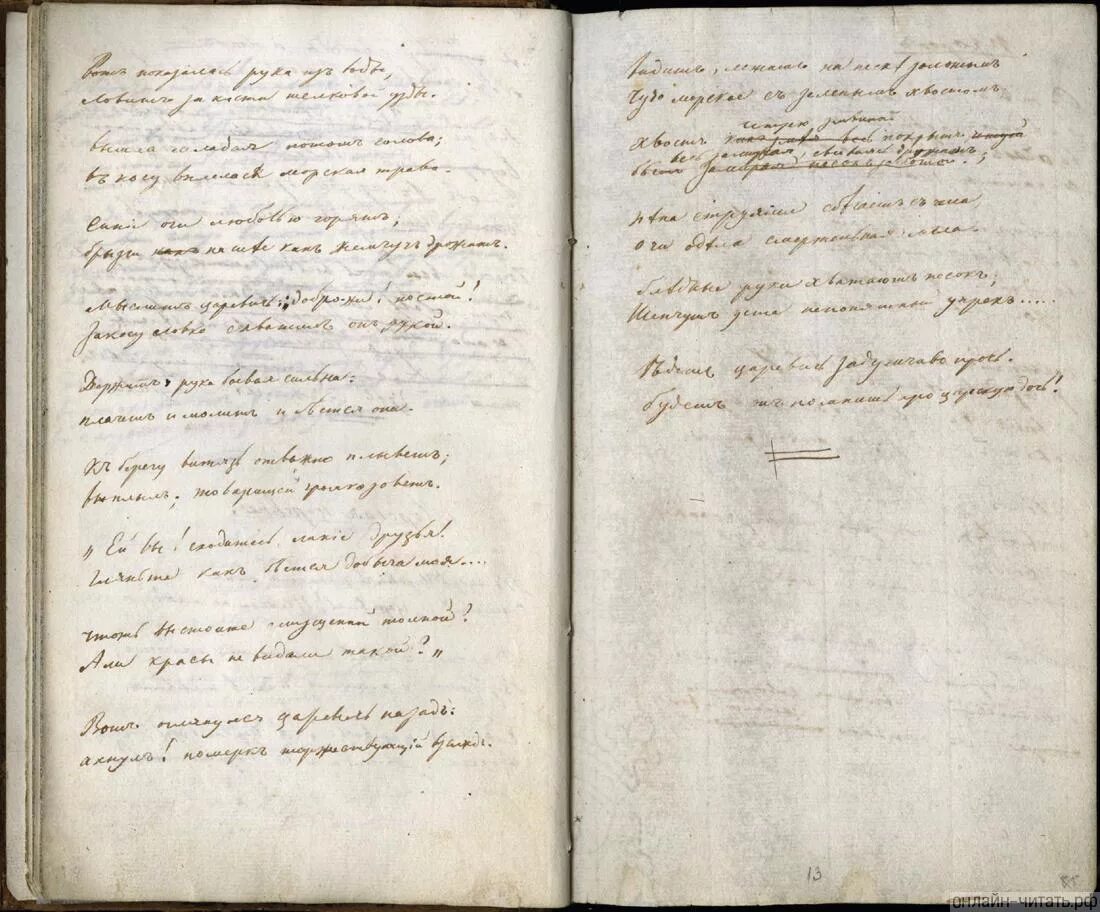 Вотъ показалась рука изъ воды,
ловитъ за кисти шелковой узды.
вышла младая потомъ голова;
въ косу вплелася морская трава.
Синіе очи любовью горятъ;
брызги какъ на шеѣ какъ жемчугъ дрожатъ.
Мыслитъ царевичь: добро же! постой!
За косу ловко схватилъ онъ рукой.
Держитъ, рука боевая сильна:
плачетъ и молитъ и бьется она.
Къ берегу витязь отважно плыветъ;
выплылъ; товарищей громко зоветъ.
„Ей вы! сходитесь лихіе друзья!
гляньте какъ бьется добыча моя....
чтожъ вы стоите смущенной толпой?
Али красы не видали такой?„
Вотъ оглянулся царевичь назадъ:
ахнулъ! померкъ торжествующій взглядъ.
Видитъ, лежитъ на песке золотомъ
Чудо морское съ зеленымъ хвостомъ;
чешуею змѣиной
хвостъ покрытъ
весь замирая, свиваясь дрожитъ;
пѣна струями сбѣгаетъ съ чела,
очи одѣла смертельная мгла.
блѣдные руки хватаютъ песокъ;
Шепчутъ уста непонятный упрекъ.....
ѣдетъ царевичь задумчиво прочь.
будетъ онъ помнить про царскую дочь!
13
онлайн-читать.рф